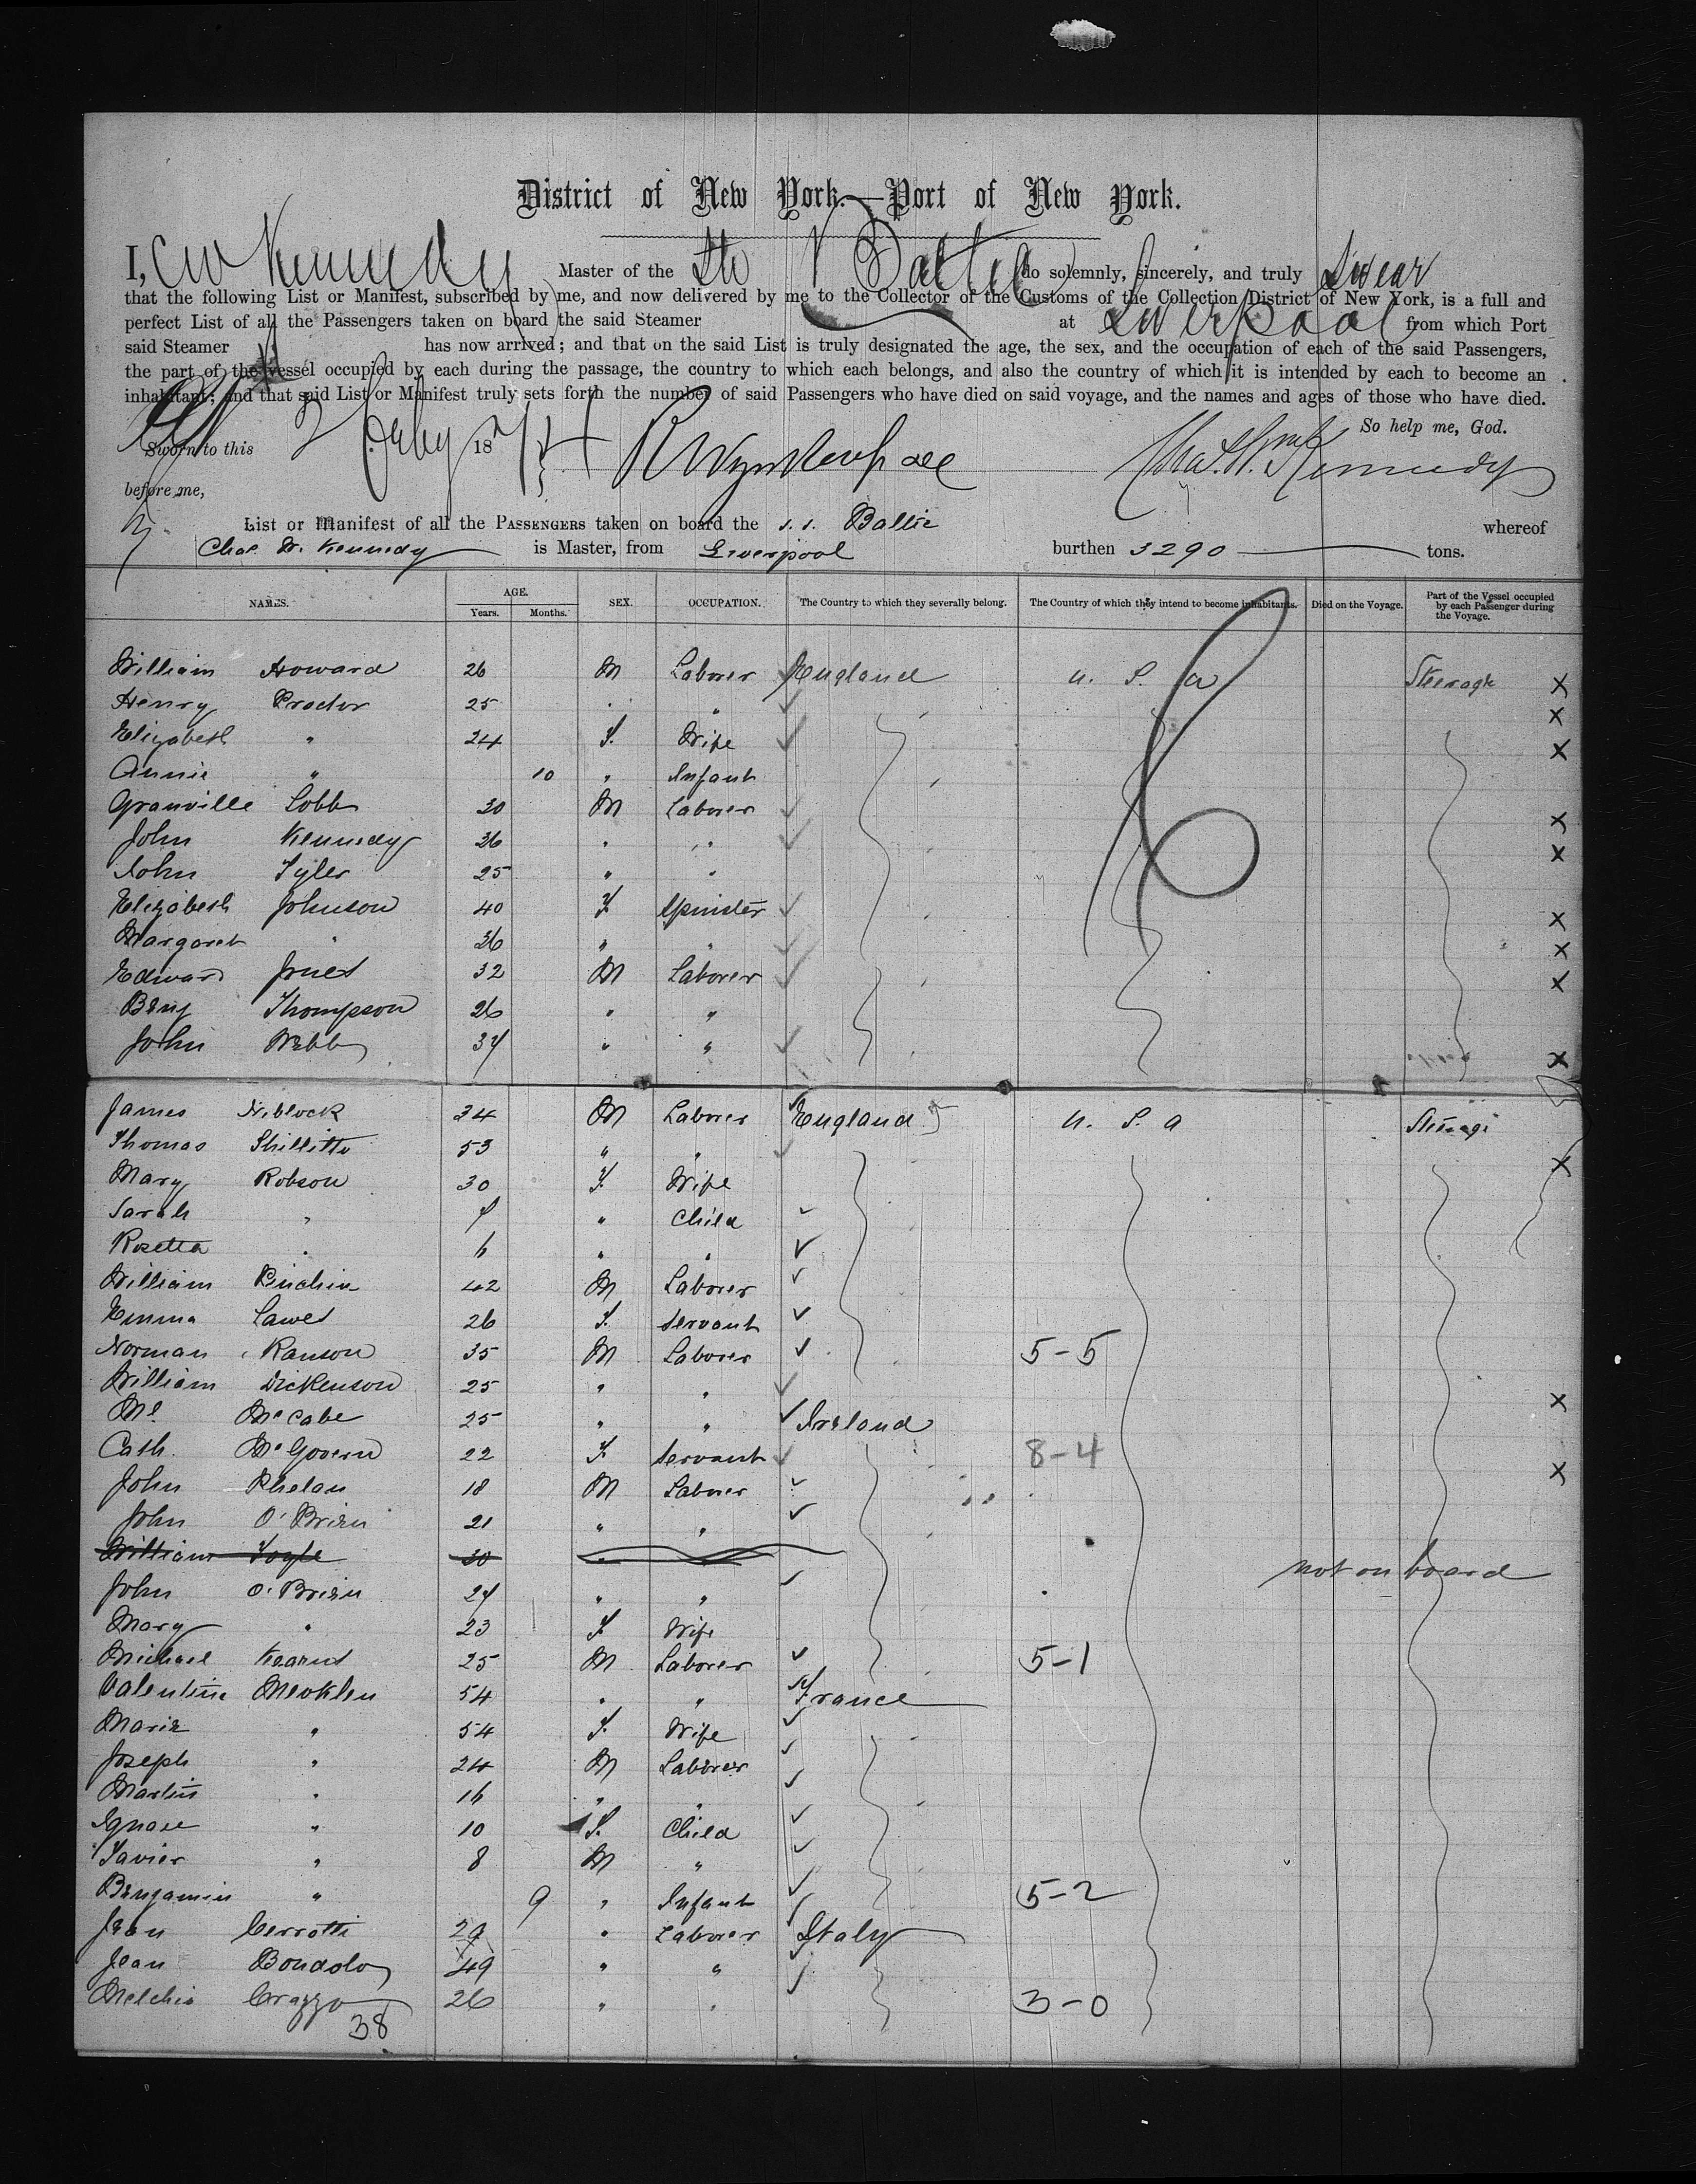 District of New York.—Port of New York.
I, C W Kennedy Master of the Str Baltic do solemnly, sincerely, and truly Swear
that the following List or Manifest, subscribed by me, and now delivered by me to the Collector of the Customs of the Collection District of New York, is a full and
perfect List of all the Passengers taken on board the said Steamer at Liverpool from which Port
said Steamer has now arrived; and that on the said List is truly designated the age, the sex, and the occupation of each of the said Passengers,
the part of the vessel occupied by each during the passage, the country to which each belongs, and also the country of which it is intended by each to become an
inhabitant; and that said List or Manifest truly sets forth the number of said Passengers who have died on said voyage, and the names and ages of those who have died.
So help me, God.
Sworn to this 2 Feby 187 Chas. W. Kennedy
before me,
List or Manifest of all the PASSENGERS taken on board the s.s. Baltic whereof
Chas. W. Kennedy is Master, from Liverpool burthen 3290 tons.
NAMES. AGE. Years. Months. SEX. OCCUPATION. The Country to which they severally belong. The Country of which they intend to become inhabitants. Died on the Voyage. Part of the Vessel occupied by each Passenger during the Voyage.
William Howard 26 M Laborer England U. S. a Steerage X
Henry Proctor 25 " " X
Elizabeth " 24 F. Wife X
Annie " 10 " Infant
Granville Cobb 30 M Laborer X
John Kennedy 36 " " X
John Tyler 25 " "
Elizabeth Johnson 40 F Spinster X
Margaret " 36 " " X
Edward Jones 32 M Laborer X
Benj Thompson 26 " "
John Webb 37 " " X
James Niblock 34 M Laborer England U. S. a Steerage
Thomas Shillitto 53 " " X
Mary Robson 30 F. Wife
Sarah " " Child
Rosetta " " "
William Pinchin 42 M Laborer
Emma Lawes 26 F. Servant
Norman Ranson 35 M Laborer 5-5
William Dickenson 25 " "
Ml. McCabe 25 " " Ireland X
Cath. McGovern 22 F. Servant 8-4
John Phelan 18 M Laborer X
John O'Brien 21 " "
William Foyle 30 " not on board
John O'Brien 27 " "
Mary " 23 F. Wife
Michael Kearns 25 M Laborer 5-1
Valentine Mecklen 54 " " France
Marie " 54 F. Wife
Joseph " 24 M Laborer
Martin " 16 " "
Ignace " 10 F. Child
Xavier " 8 M "
Benjamin " 9 " Infant 5-2
Jean Cerrotti 29 " Laborer Italy
Jean Bondoloy 49 " "
Melchio Crazzo 26 " " 3-0
38